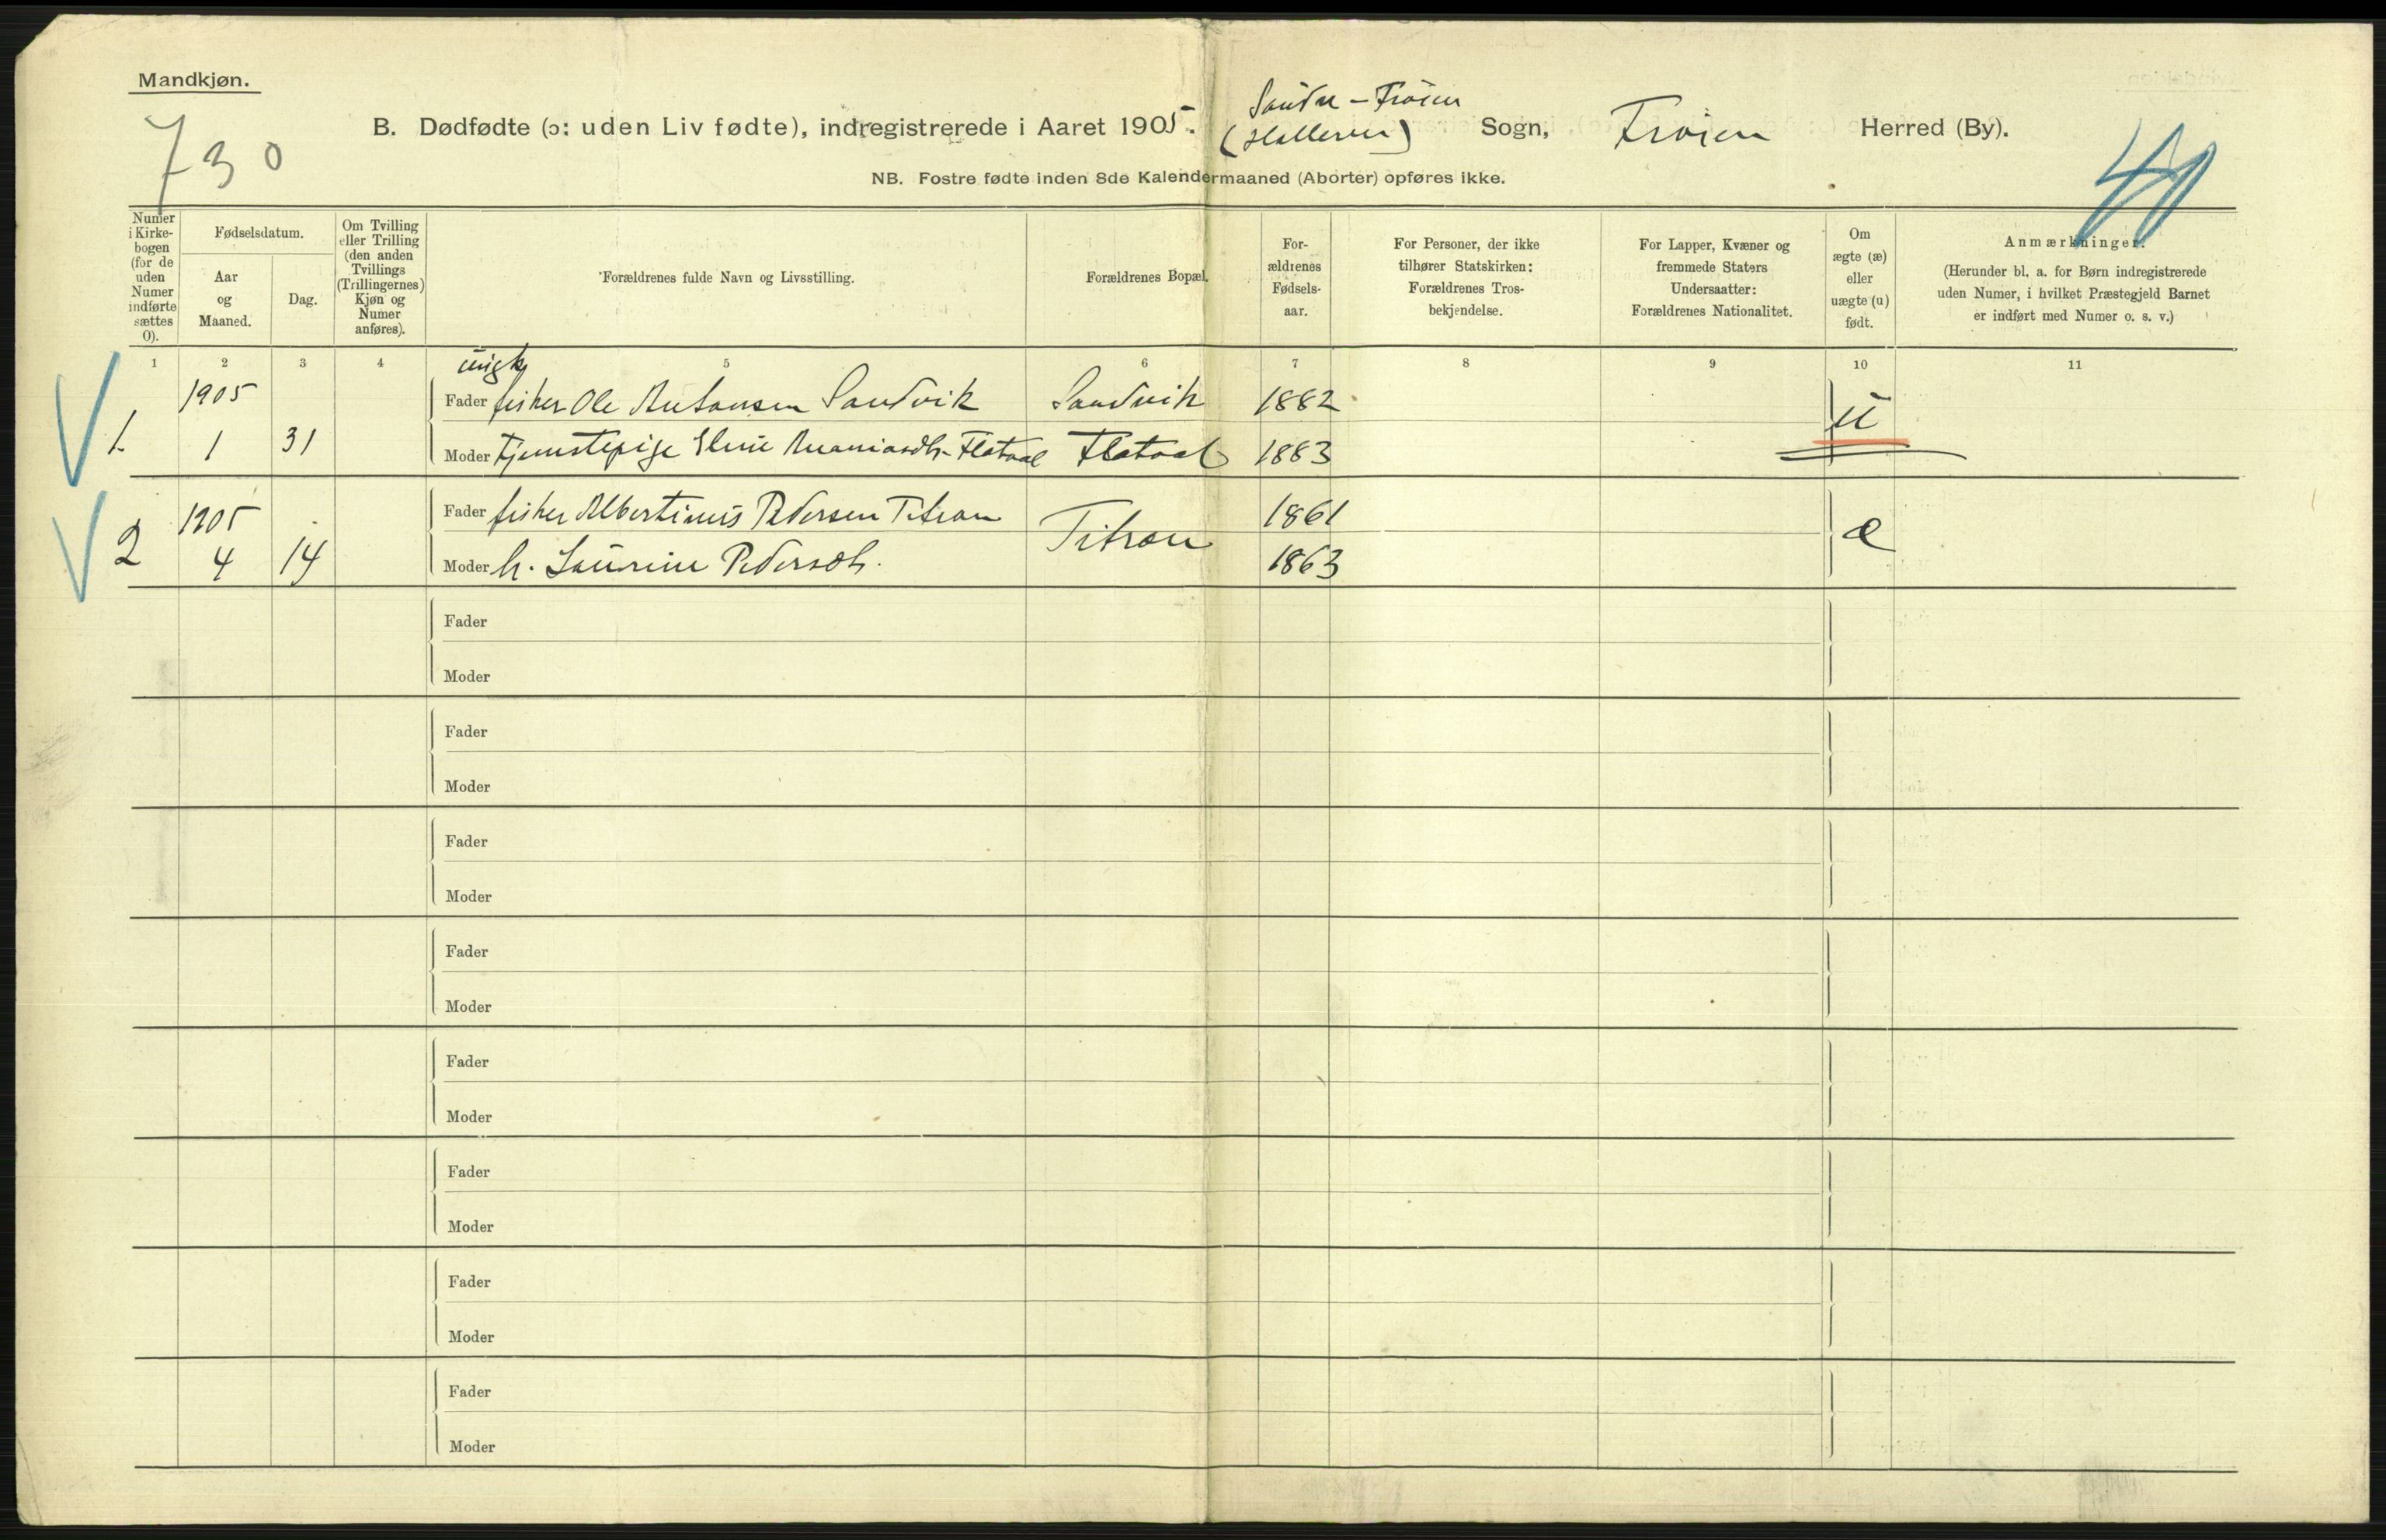 Mandkjøn.
730
B. Dødfødte (ɔ: uden Liv fødte), indregistrerede i Aaret 1905. Søndre-Frøien (Halleren) Sogn, Frøien Herred (By).
NB. Fostre fødte inden 8de Kalendermaaned (Aborter) opføres ikke.
Numer i Kirke-bogen (for de uden Numer indførte sættes 0).
Fødselsdatum.
Aar og Maaned.
Dag.
Om Tvilling eller Trilling (den anden Tvillings (Trillingernes) Kjøn og Numer anføres).
Forældrenes fulde Navn og Livsstilling.
Forældrenes Bopæl.
For-ældrenes Fødsels-aar.
For Personer, der ikke tilhører Statskirken: Forældrenes Tros-bekjendelse.
For Lapper, Kvæner og fremmede Staters Undersaatter: Forældrenes Nationalitet.
Om ægte (æ) eller uægte (u) født.
Anmærkninger.
(Herunder bl. a. for Børn indregistrerede uden Numer, i hvilket Præstegjeld Barnet er indført med Numer o. s. v.)
1 2 3 4 5 6 7 8 9 10 11
ungk
1905 Fader fisker Ole Antonsen Sandvik Sandvik 1882 u
1. 1 31 Moder Tjenestepige Ananiasdtr. Flatval Flatval 1883
1905 Fader fisker Albertinus Pedersen Titran Titran 1861 æ
2 4 14 Moder h. Laurine Pedersdtr. 1863
Fader
Moder
Fader
Moder
Fader
Moder
Fader
Moder
Fader
Moder
Fader
Moder
Fader
Moder
Fader
Moder